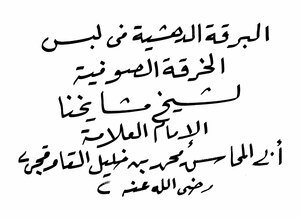 البرقة الدهشية في لبس
الخرقة الصوفية
لشيخ مشايخنا
الإمام العلامة
أبي المحاسن محمد بن خليل القاوقجي
رضي الله عنه